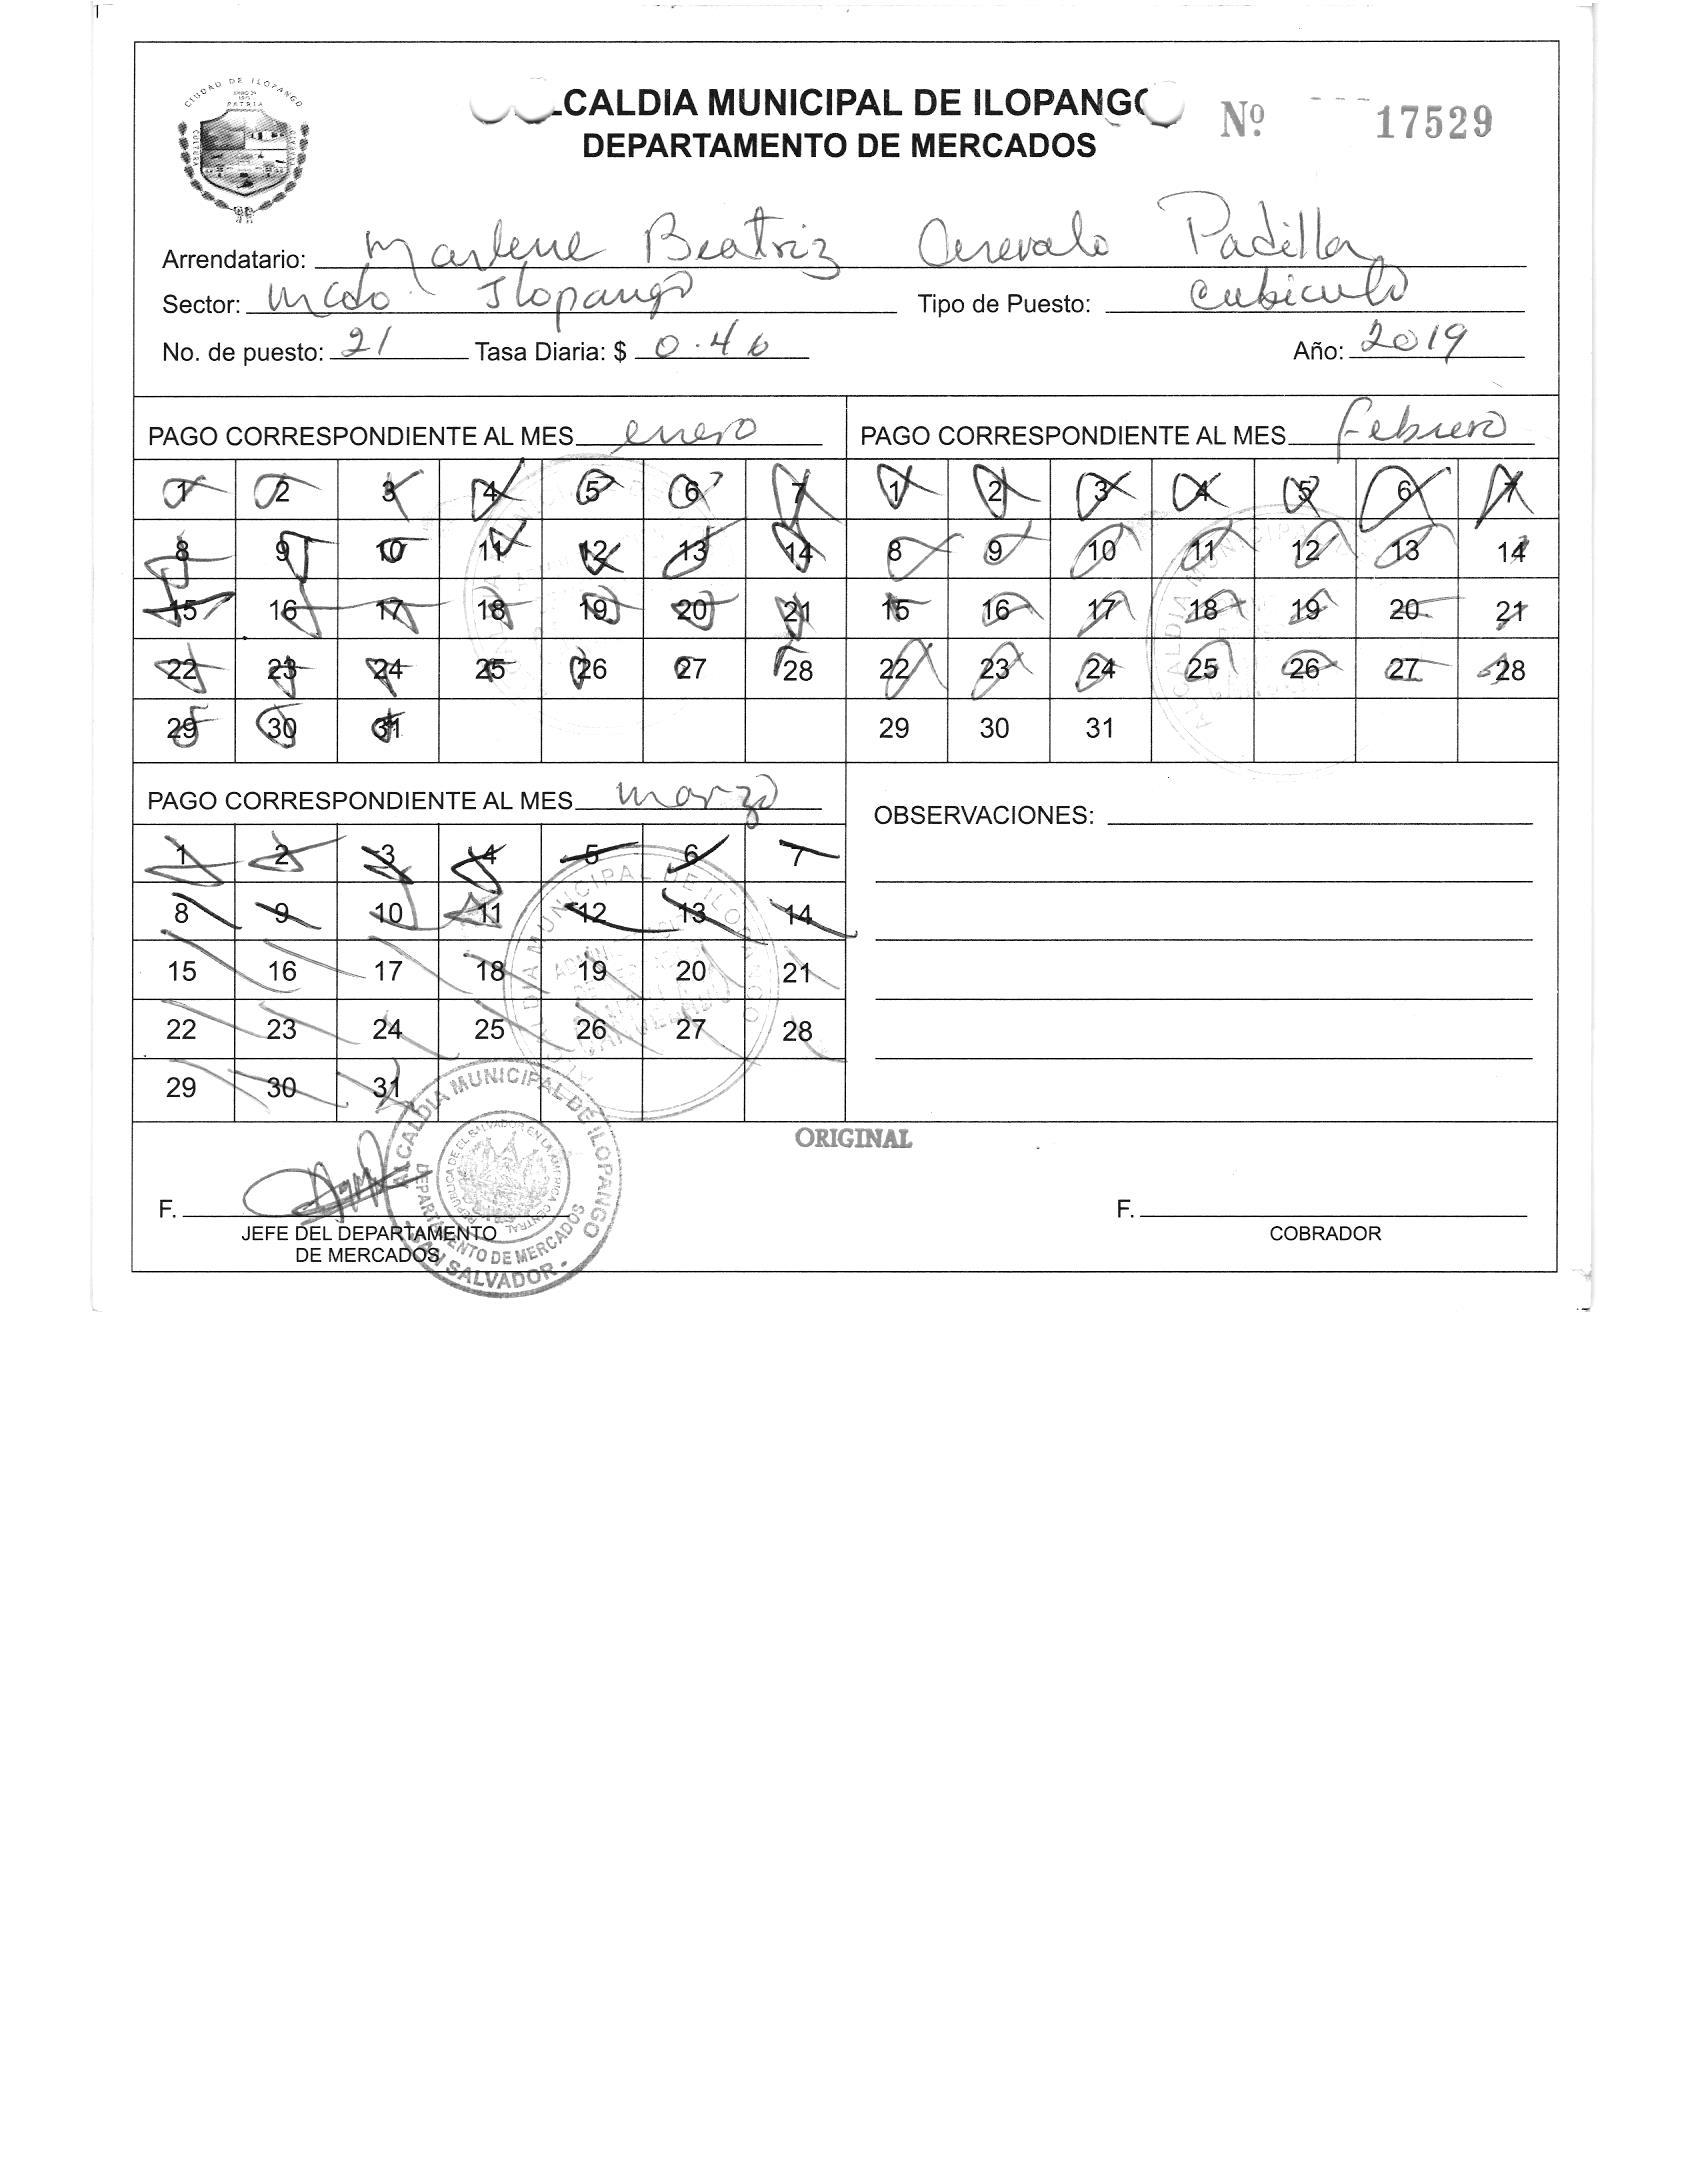 CIUDAD DE ILOPANGO
PATRIA
CULTURA
CALDIA MUNICIPAL DE ILOPANGO
DEPARTAMENTO DE MERCADOS
Nº 17529
Arrendatario: Marlene Beatriz Arevalo Padilla
Sector: Mcdo. Ilopango Tipo de Puesto: Cubiculo
No. de puesto: 21 Tasa Diaria: $ 0.46 Año: 2019
PAGO CORRESPONDIENTE AL MES enero
1 2 3 4 5 6 7
8 9 10 11 12 13 14
15 16 17 18 19 20 21
22 23 24 25 26 27 28
29 30 31
PAGO CORRESPONDIENTE AL MES Febrero
1 2 3 4 5 6 7
8 9 10 11 12 13 14
15 16 17 18 19 20 21
22 23 24 25 26 27 28
29 30 31
PAGO CORRESPONDIENTE AL MES marzo
1 2 3 4 5 6 7
8 9 10 11 12 13 14
15 16 17 18 19 20 21
22 23 24 25 26 27 28
29 30 31
OBSERVACIONES:
ALCALDIA MUNICIPAL DE ILOPANGO
ORIGINAL
F.
JEFE DEL DEPARTAMENTO
DE MERCADOS
ALCALDIA MUNICIPAL DE ILOPANGO
DEPARTAMENTO DE MERCADOS
REPUBLICA DE EL SALVADOR EN LA AMERICA CENTRAL
SAN SALVADOR.
F.
COBRADOR